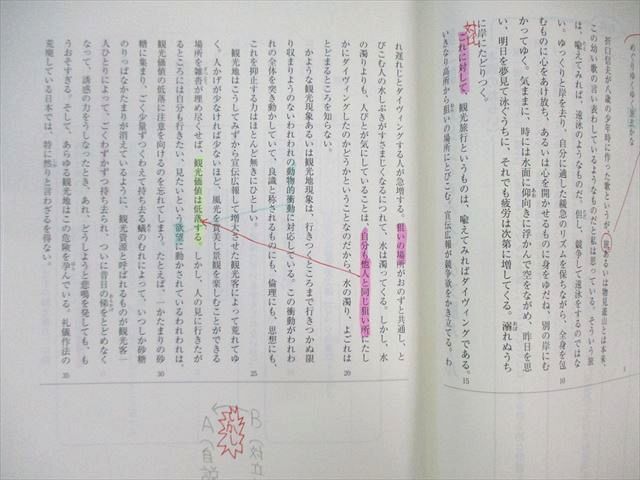 折口信夫が八歳の少年時に作った歌というが、旅あるいは物見遊山とは本来、
この幼い歌の言い表わしているようなものだと私は思っている。そういう旅
は、喩えてみれば、遠泳のようなものだ。但し、競争して遠泳をするのではな
い。ゆっくりと岸を去り、自分に適した緩急のリズムを保ちながら、全身を包
むものに心をあけ放ち、あるいは心を開かせるものに身をゆだね、別の岸にむ
かってゆく。気ままに、時には水面に仰向きに浮かんで空をながめ、昨日を思
い、明日を夢見て泳ぐうちに、それでも疲労は次第に増してくる。溺れぬうち
に岸にたどりつく。
これに対して、観光旅行というものは、喩えてみればダイヴィングである。
いきなり高所から狙いの場所にとびこむ。宣伝広報が競争欲をかき立てる。わ
れ遅れじとダイヴィングする人が急増する。狙いの場所がおのずと共通し、と
びこむ人の水しぶきがすさまじくなるにつれて、水は濁ってくる。しかし、水
の濁りよりも、人びとが気にしていることは、自分も他人と同じ狙い所にたし
かにダイヴィングしたのかどうかということなのだから、水の濁り、よごれは
とどまるところを知らない。
かような観光現象あるいは観光地現象は、行きつくところまで行きつかぬ限
り収まりようのないわれわれの動物的衝動に対応している。この衝動がわれわ
れの全体を突き動かしていて、良識と称されるものにも、倫理にも、思想にも、
これを抑止する力はほとんど無きにひとしい。
観光地はこうしてみずから宣伝広報して増大させた観光客によって荒れてゆ
く。人かげが少なければ少ないほど、風光を賞美し景観を楽しむことができる
場所を雑沓が埋め尽くせば、観光価値は低落する。しかし、人の見に行きたが
るところには自分も行きたい、見たいという欲望に動かされているわれわれは、
観光価値の低落に注意を向けるのを忘れてしまう。たとえば、一かたまりの砂
糖に集まり、ごく少量ずつくわえて持ち去る蟻のむれによって、いつしか砂糖
のりっぱなかたまりが消えているように、観光資源と呼ばれるものが観光客一
人ひとりによって、ごくわずかずつ持ち去られ、ついに昔日の俤をとどめなく
なって、誘惑の力をうしなったとき、あれ、どうしようと悲鳴を発しても、も
うおそすぎる。そして、あらゆる観光地はこの危険を孕んでいる。礼儀作法の
荒廃している日本では、特に然りと言わざるを得ない。
10
15
20
25
30
35
対比
B(対立
A(自説